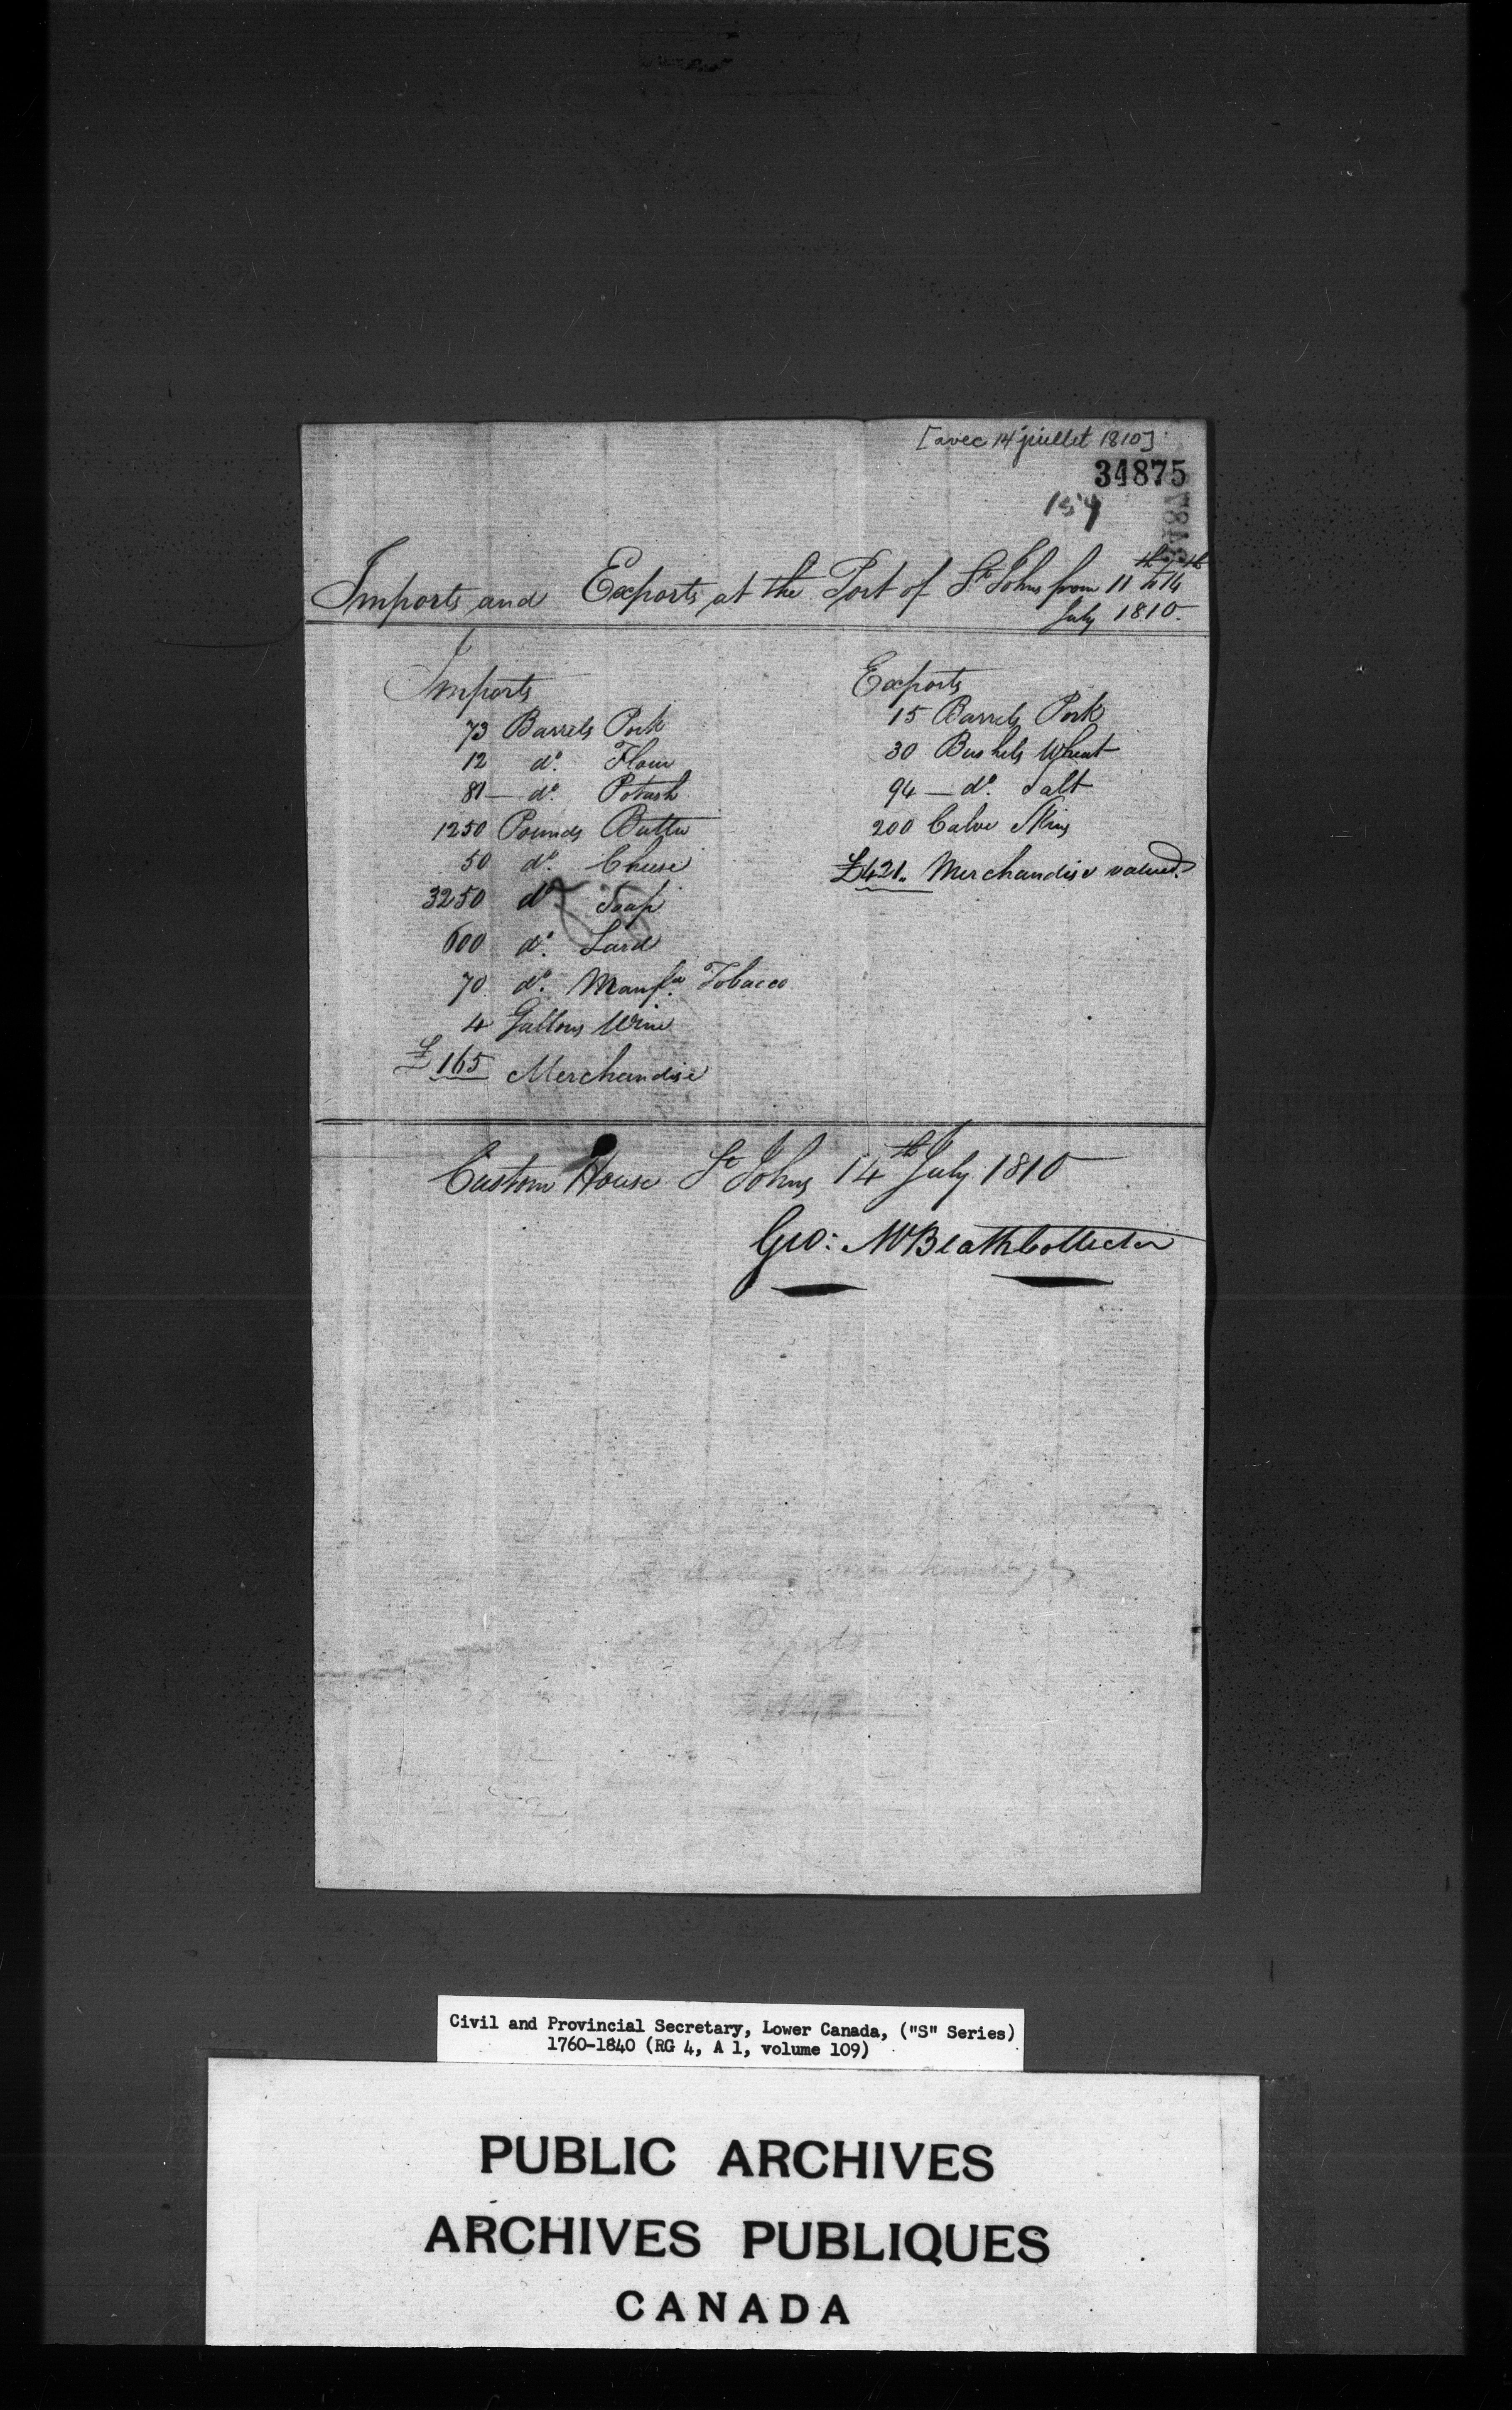 [avec 14 juillet 1810]
34875
154
Imports and Exports at the Port of St Johns from 11th to 14th
July 1810.
Imports
73 Barrels Pork
12 do. Flour
81 — do. Potash
1250 Pounds Butter
50 do. Cheese
3250 do. Soap
600 do. Lard
70 do. Manfd. Tobacco
4 Gallons Wine
£165 Merchandise
Exports
15 Barrels Pork
30 Bushels Wheat
94 — do. Salt
200 Calve Skins
£421. Merchandise valued
Custom House St Johns 14th July 1810
Geo: McBeath Collector
Civil and Provincial Secretary, Lower Canada, ("S" Series)
1760-1840 (RG 4, A 1, volume 109)
PUBLIC ARCHIVES
ARCHIVES PUBLIQUES
CANADA